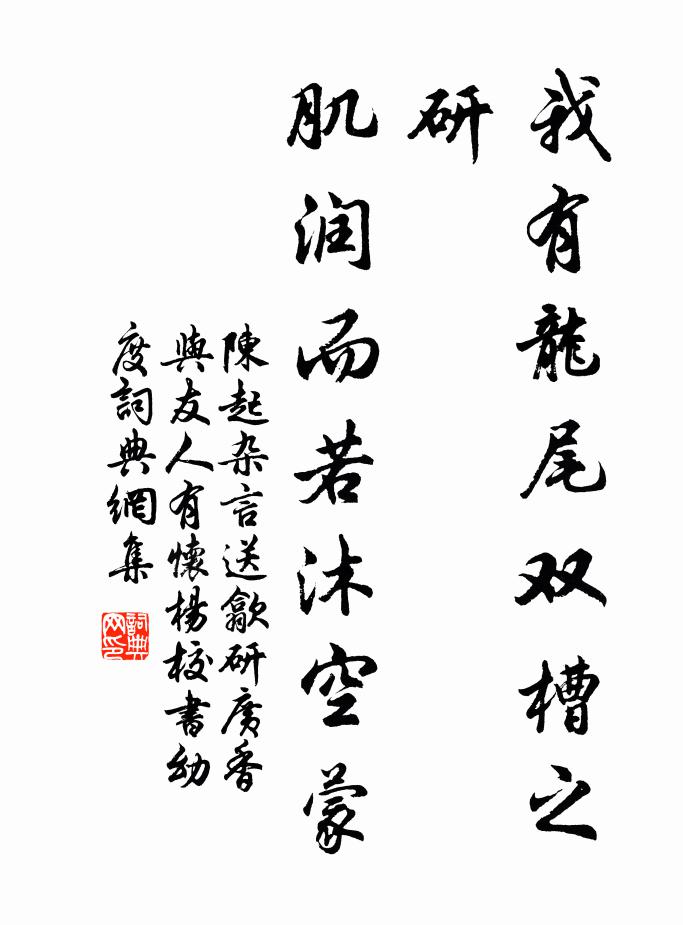 我有龍尾双槽之
研
肌润而若沐空蒙
陳起杂言送歙研廣香
與友人有懷楊校書幼
度詞典網集
詞典
网印